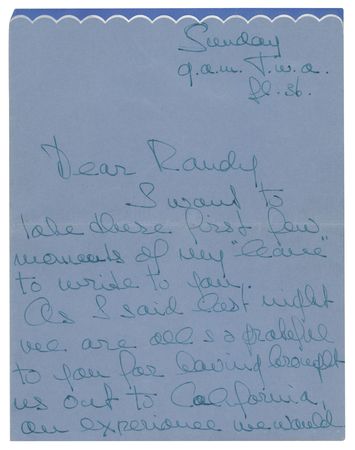 Sunday
9. a.m. T.w.a.
fl. 36.
Dear Randy
I want to
take these first few
moments of my "leave"
to write to you.
As I said last night
we are all so grateful
to you for having brought
us out to California,
an experience we would